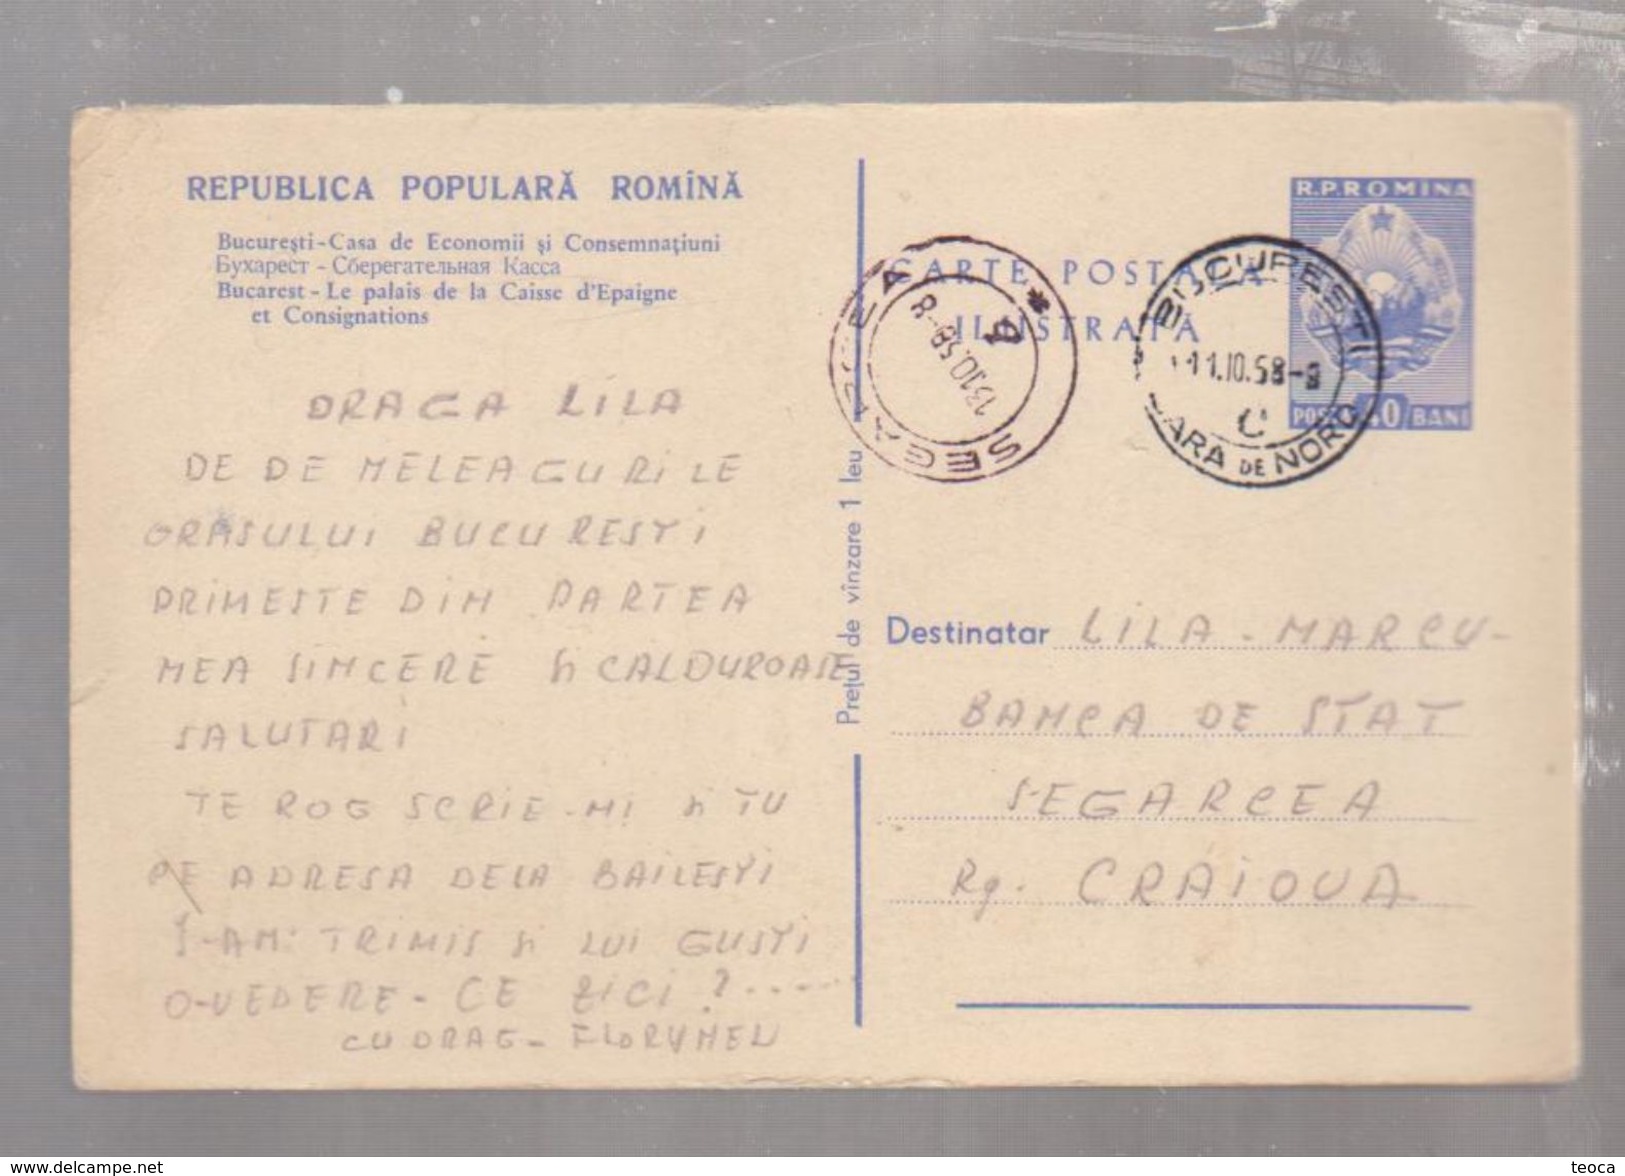 REPUBLICA POPULARĂ ROMÎNĂ
Bucureşti-Casa de Economii şi Consemnaţiuni
Бухарест - Сберегательная Касса
Bucarest - Le palais de la Caisse d'Epaigne
et Consignations
DRAGA LILA
DE DE MELEAGURILE
ORASULUI BUCURESTI
PRIMESTE DIN PARTEA
MEA SINCERE SI CALDUROASE
SALUTARI
TE ROG SCRIE-MI SI TU
PE ADRESA DELA BAILESTI
I-AM TRIMIS SI LUI GUSTI
O-VEDERE - CE ZICI ?......
CU DRAG -
Preţul de vînzare 1 leu
CARTE POSTALĂ
ILUSTRATĂ
R.P.ROMINA
POSTA 40 BANI
SEGARCEA
13.10.58-8
BUCURESTI
11.10.58-
C
GARA DE NORD
Destinatar LILA - MARCU -
BANCA DE STAT
SEGARCEA
Rg. CRAIOVA
www.delcampe.net
teoca